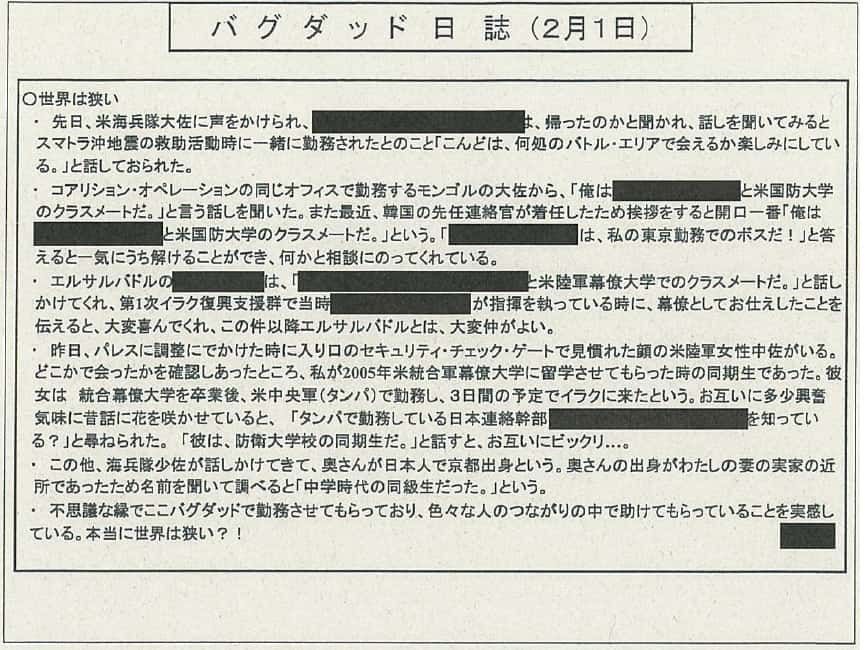 バグダッド日誌（２月１日）
○世界は狭い
・ 先日、米海兵隊大佐に声をかけられ、は、帰ったのかと聞かれ、話しを聞いてみると
スマトラ沖地震の救助活動時に一緒に勤務されたとのこと「こんどは、何処のバトル・エリアで会えるか楽しみにしてい
る。」と話しておられた。
・ コアリション・オペレーションの同じオフィスで勤務するモンゴルの大佐から、「俺はと米国防大学
のクラスメートだ。」と言う話しを聞いた。また最近、韓国の先任連絡官が着任したため挨拶をすると開口一番「俺は
と米国防大学のクラスメートだ。」という。「は、私の東京勤務でのボスだ！」と答
えると一気にうち解けることができ、何かと相談にのってくれている。
・ エルサルバドルのは、「と米陸軍幕僚大学でのクラスメートだ。」と話し
かけてくれ、第１次イラク復興支援群で当時が指揮を執っている時に、幕僚としてお仕えしたことを
伝えると、大変喜んでくれ、この件以降エルサルバドルとは、大変仲がよい。
・ 昨日、パレスに調整にでかけた時に入り口のセキュリティ・チェック・ゲートで見慣れた顔の米陸軍女性中佐がいる。
どこかで会ったかを確認しあったところ、私が2005年米統合軍幕僚大学に留学させてもらった時の同期生であった。彼
女は 統合幕僚大学を卒業後、米中央軍（タンパ）で勤務し、３日間の予定でイラクに来たという。お互いに多少興奮
気味に昔話に花を咲かせていると、 「タンパで勤務している日本連絡幹部を知ってい
る？」と尋ねられた。 「彼は、防衛大学校の同期生だ。」と話すと、お互いにビックリ…。
・ この他、海兵隊少佐が話しかけてきて、奥さんが日本人で京都出身という。奥さんの出身がわたしの妻の実家の近
所であったため名前を聞いて調べると「中学時代の同級生だった。」という。
・ 不思議な縁でここバグダッドで勤務させてもらっており、色々な人のつながりの中で助けてもらっていることを実感し
ている。本当に世界は狭い？！